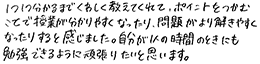 1つ1つ分かるまでくわしく教えてくれて、ポイントをつかむ
ことで授業が分かりやすくなったり、問題がより解きやすく
なったりすると感じました。自分が1人の時間のときにも
勉強できるように頑張りたいと思います。